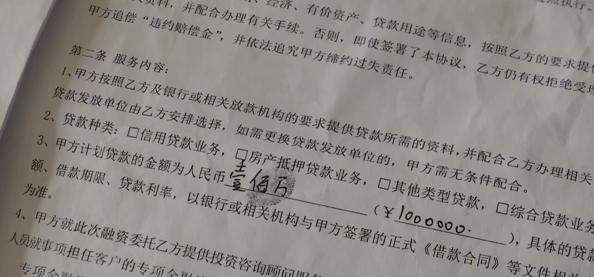 、经济、有价资产、贷款用途等信息,按照乙方的要求提
资料,并配合办理有关手续。否则,即使签署了本协议,乙方仍有权拒绝受
甲方追偿“违约赔偿金”,并依法追究甲方缔约过失责任。
第二条 服务内容:
1、甲方按照乙方及银行或相关放款机构的要求提供贷款所需的资料,并配合乙方办理相关
贷款发放单位由乙方安排选择,如需更换贷款发放单位的,甲方需无条件配合。
2、贷款种类:□信用贷款业务,□房产抵押贷款业务,□其他类型贷款,□综合贷款业务
3、甲方计划贷款的金额为人民币壹佰万(¥1000000.),具体的贷款
额、借款期限、贷款利率,以银行或相关机构与甲方签署的正式《借款合同》等文件相
为准。
4、甲方就此次融资委托乙方提供投资咨询顾问服
人员就事项担任客户的专项金融
专项金融